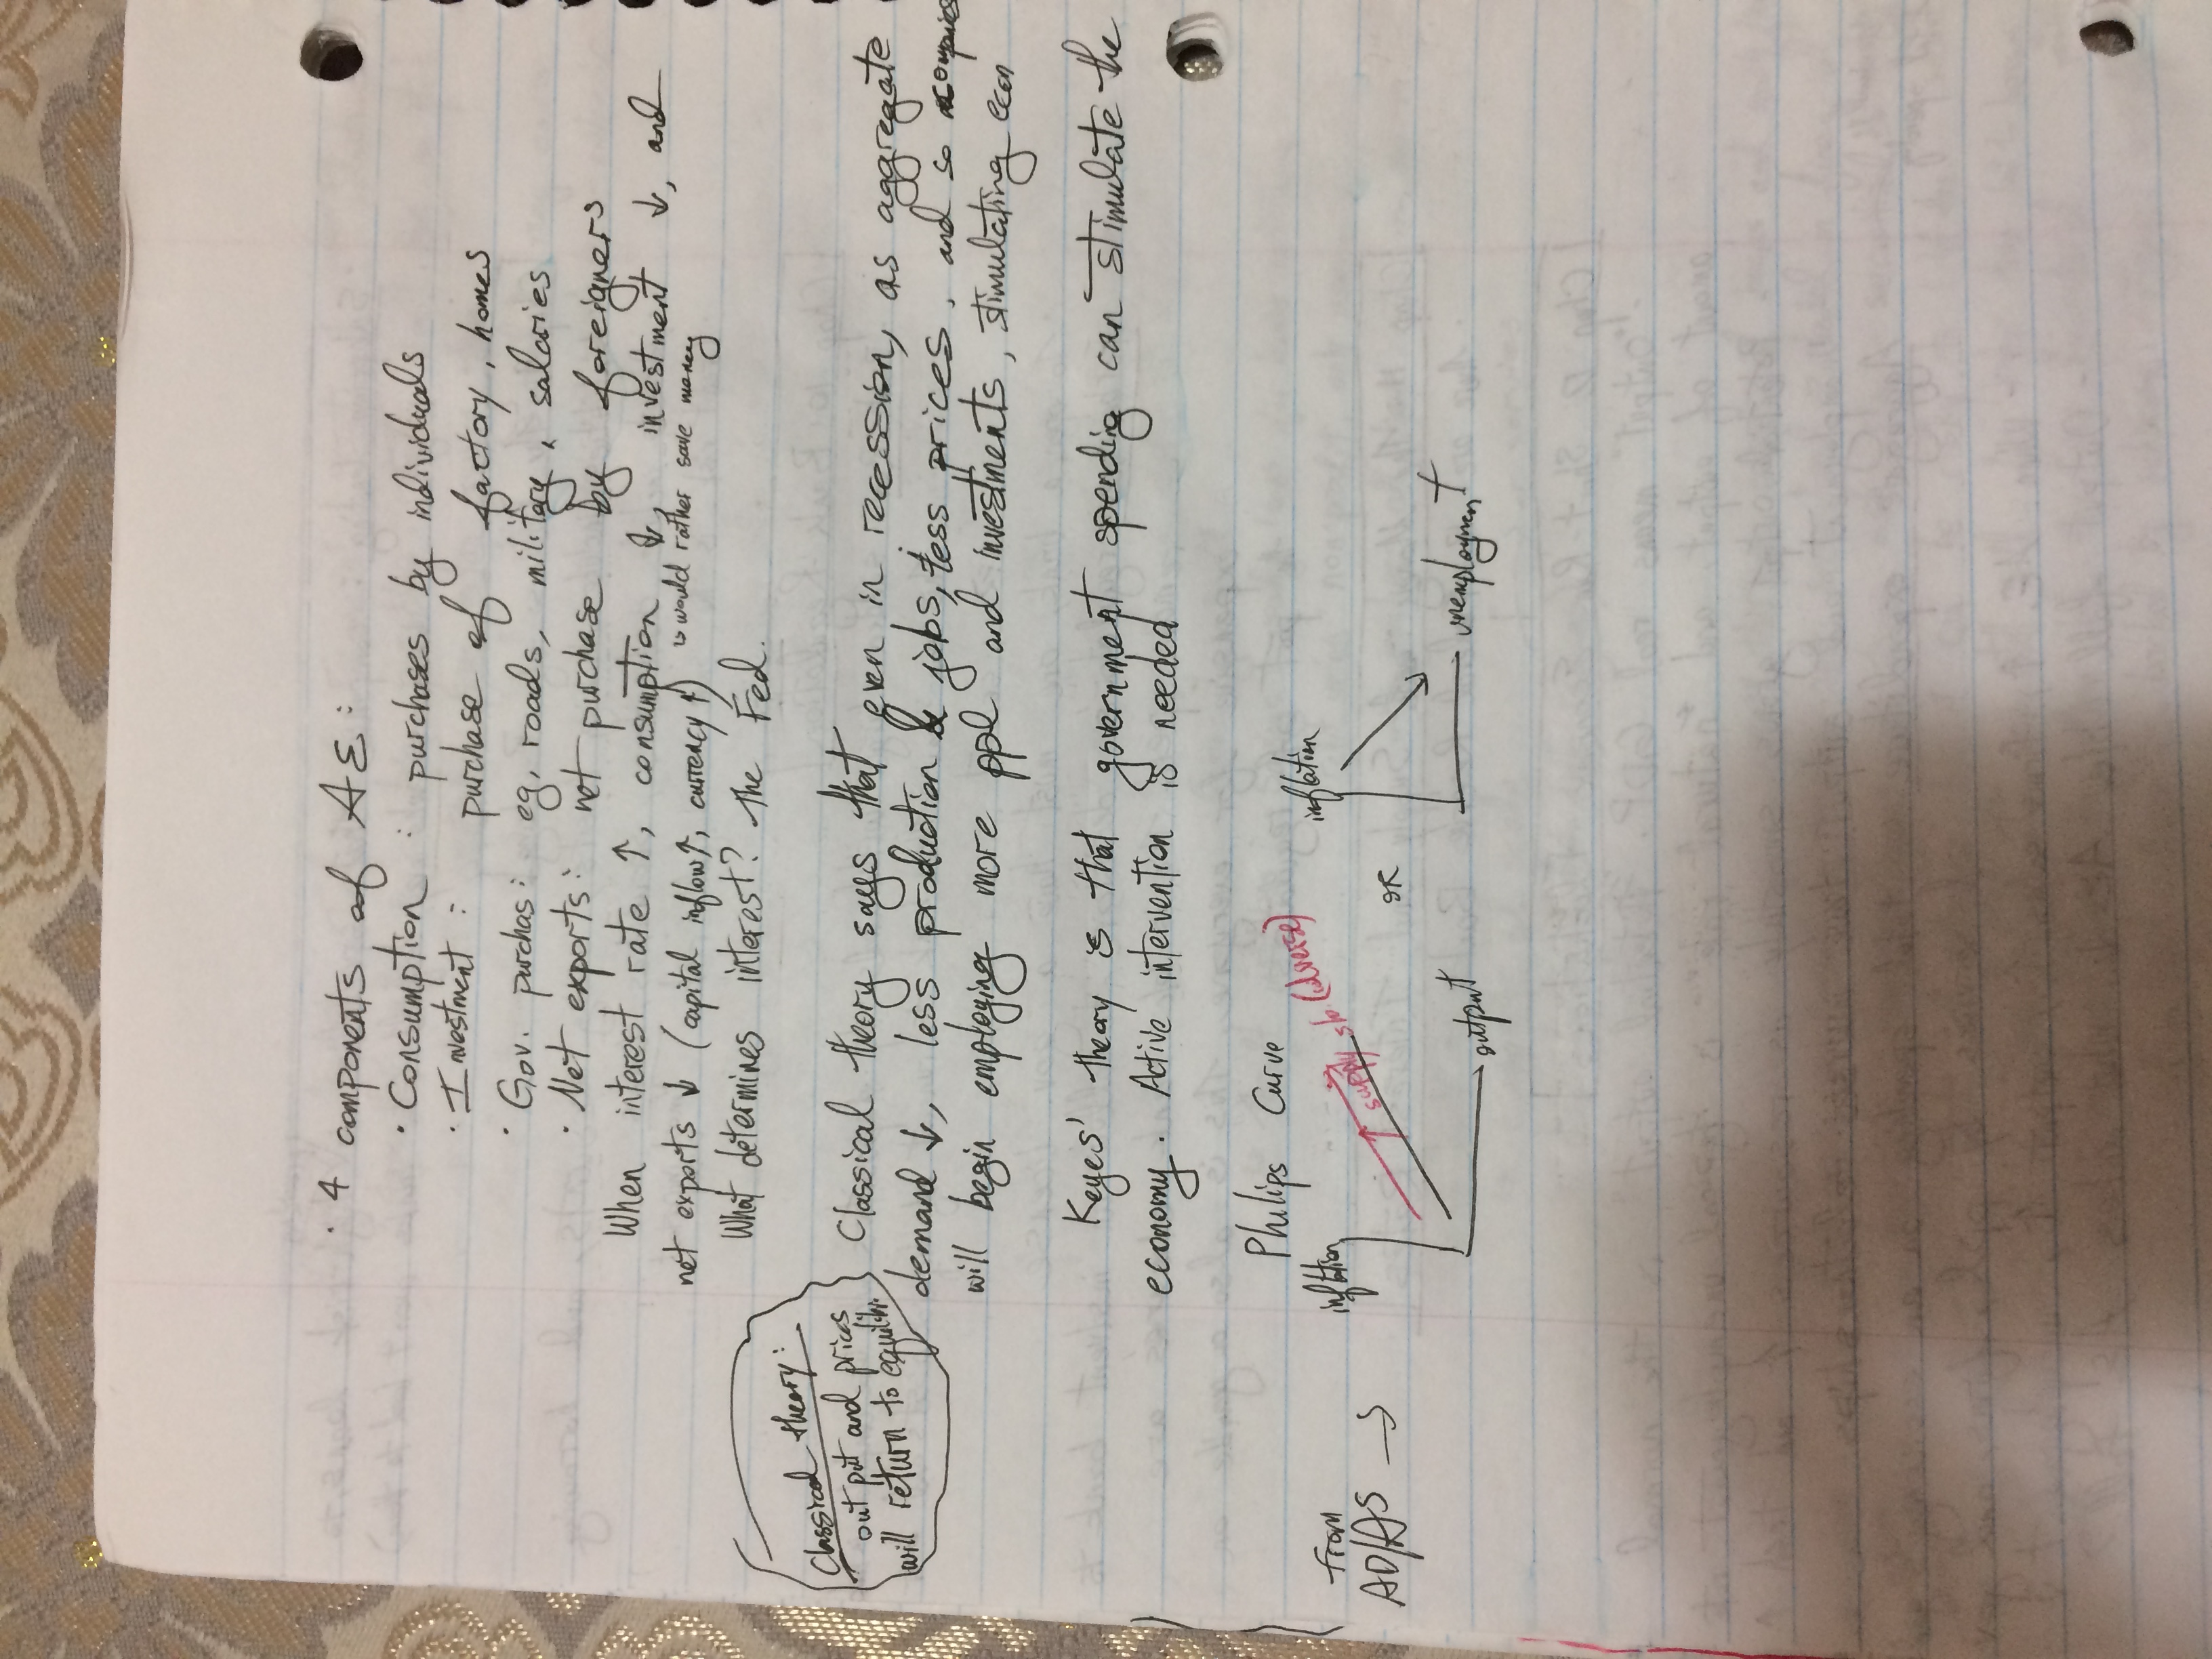 · 4 components of AE:
· Consumption : purchases by individuals
· Investment : purchase of factory, homes
· Gov. purchas: eg, roads, military, salaries
· Net exports: net purchase by foreigners
When interest rate ↑, consumption ↓, investment ↓, and
net exports ↓ (capital inflow↑, currency ↑) ↳ would rather save money
What determines interest? The Fed.
Classical theory:
out put and prices
will return to equilibr.
Classical theory says that even in recession, as aggregate
demand ↓, less production & jobs, less prices, and so
will begin employing more ppl and investments, stimulating econ
Keyes' theory is that government spending can stimulate the
economy. Active intervention is needed
Philips Curve
from
AD/AS →
inflation
supply sho. (adverse)
output
or
inflation
unemployment